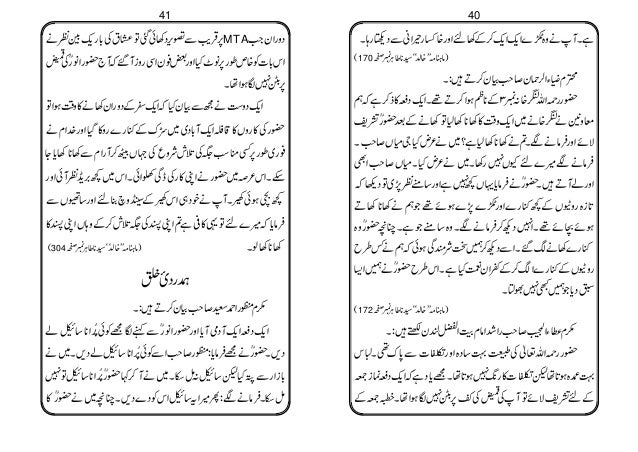 40
ہے۔ آپ نے وہ ٹکڑے ایک ایک کر کے کھالئے اور خاکسار حیرانی سے دیکھتا رہا۔
(ماہنامہ ’’خالد‘‘ سیدنا طاہر نمبر صفحہ 170)
محترم ضیاء الرحمان صاحب بیان کرتے ہیں:۔
حضور رحمہ اللہ لنگر خانہ نمبر ۳ کے ناظم ہوا کرتے تھے۔ ایک دفعہ کا ذکر ہے کہ ہم
معاونین نے لنگر خانے میں ایک وقت کا کھانا کھالیا تو کھانے کے بعد حضورؒ تشریف
لائے اور فرمانے لگے۔ تم نے کھانا کھالیا ہے؟ میں نے عرض کیا جی میاں صاحب۔
فرمانے لگے میرے لئے کیوں نہیں رکھا۔ میں نے عرض کیا۔ میاں صاحب ابھی
اور لے آتے ہیں۔ حضورؒ نے فرمایا یہاں کچھ نہیں ہے اور سامنے نظر پڑی تو دیکھا کہ
تازہ روٹیوں کے کچھ کنارے اور ٹکڑے پڑے ہوئے تھے جو ہم نے کھانا کھاتے
ہوئے بچائے تھے۔ انہیں دیکھ کر فرمانے لگے۔ وہ سامنے جو ہے۔ چنانچہ حضورؒ وہ
کنارے کھانے لگ گئے۔ اسے دیکھ کر ہمیں سخت شرمندگی ہوئی کہ ہم نے کس طرح
روٹیوں کے کنارے الگ کر کے کفران نعمت کیا ہے۔ اس طرح حضورؒ نے ہمیں ایسا
سبق دیا جو ہمیں کبھی نہیں بھولتا۔
(ماہنامہ ’’خالد‘‘ سیدنا طاہر نمبر صفحہ 172)
مکرم عطاء المجیب صاحب راشد امام بیت الفضل لندن لکھتے ہیں:۔
حضور رحمہ اللہ تعالیٰ کی طبیعت بہت سادہ اور تکلفات سے پاک تھی۔ لباس
بہت عمدہ ہوتا تھا۔ لیکن تکلفات کا رنگ نہیں ہوتا تھا۔ مجھے یاد ہے کہ ایک دفعہ نماز جمعہ
کے لئے تشریف لائے تو آپ کی قمیض کی کف پر بٹن نہیں لگا ہوا تھا۔ خطبہ جمعہ کے
41
دوران جب MTA پر قریب سے تصویر دکھائی گئی تو عشاق کی باریک بین نظر نے
اس بات کو خاص طور پر نوٹ کیا اور بعض فون اسی روز آ گئے کہ آج حضور انورؒ کی قمیض
پر بٹن نہیں لگا ہوا تھا۔
ایک دوست نے مجھ سے بیان کیا کہ ایک سفر کے دوران کھانے کا وقت ہوا تو
حضورؒ کی کاروں کا قافلہ ایک آبادی میں سڑک کے کنارے روکا گیا اور خدام نے
فوری طور پر کسی مناسب جگہ کی تلاش شروع کی جہاں بیٹھ کر آرام سے کھانا کھایا جا
سکے۔ اس عرصہ میں حضورؒ نے اپنی کار کی ڈگی کھلوائی۔ اس میں کچھ بریڈ نظر آئی اور
کچھ بچی ہوئی کھیر۔ آپ نے خود ہی اس کھیر کے سینڈوچ بنا لئے اور ساتھیوں سے
فرمایا کہ میرے لئے تو یہی کافی ہے تم اپنی پسند کی جگہ تلاش کر کے وہاں اپنی پسند کا
کھانا کھا لو۔ (ماہنامہ ’’خالد‘‘ سیدنا طاہر نمبر صفحہ 304)
ہمدردیٔ خلق
مکرم منظور احمد سعید صاحب بیان کرتے ہیں:۔
ایک دفعہ ایک آدمی آیا اور حضور انورؒ سے کہنے لگا مجھے کوئی پُرانا سائیکل لے
دیں۔ حضورؒ نے مجھے فرمایا: منظور صاحب اسے کوئی پُرانا سائیکل لے دیں۔ میں نے
بازار سے پتہ کیا لیکن سائیکل نہ مل سکا۔ میں نے آ کر کہا حضورؒ پُرانا سائیکل تو نہیں
مل سکا۔ فرمانے لگے: پھر میرا یہ سائیکل اس کو دے دیں۔ چنانچہ میں نے حضورؒ کا